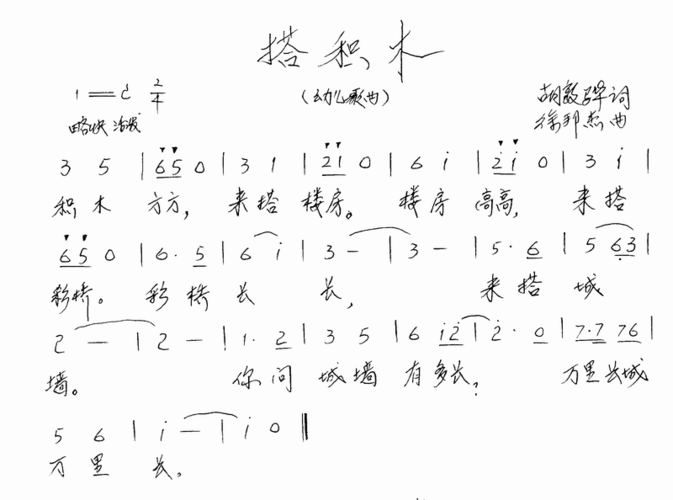 搭积木
(幼儿歌曲)
1=C 2/4
略快 活泼
胡敦骅 词
徐邦杰 曲
3 5 | 6 5 0 | 3 1 | 2 1 0 | 6 i | 2 i 0 | 3 i |
积木方方,来搭楼房。楼房高高,来搭
6 5 0 | 6· 5 | 6 i | 3 — | 3 — | 5· 6 | 5 6 3 |
彩桥。彩桥长长,来搭城
2 — | 2 — | 1· 2 | 3 5 | 6 i 2 | 2· 0 | 7·7 76 |
墙。你问城墙有多长?万里长城
5 6 | i — | i 0 ‖
万里长。